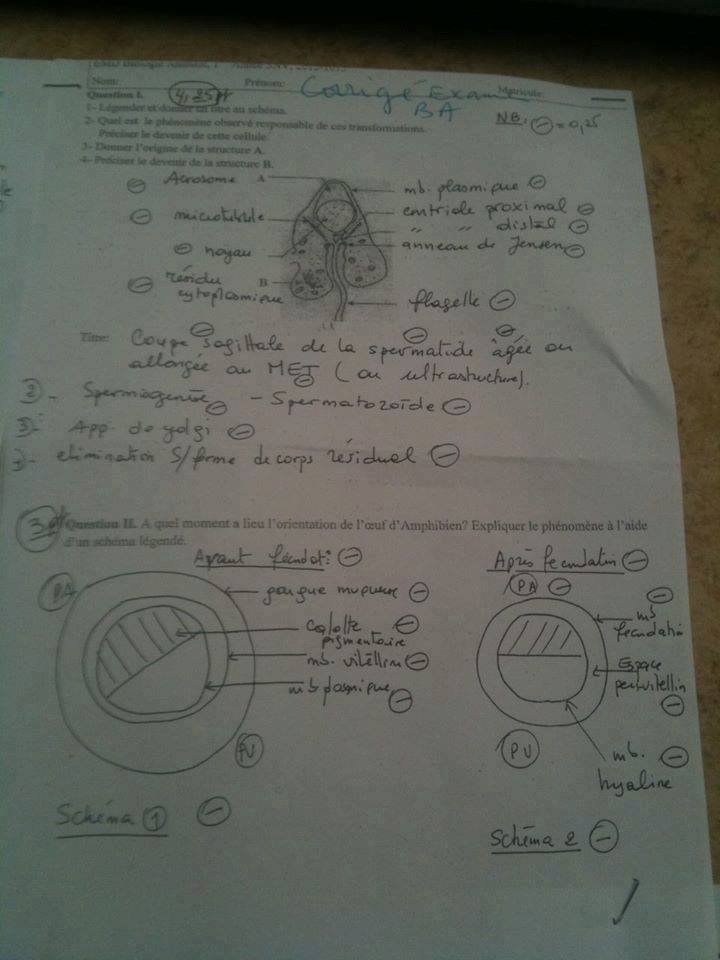 Nom: Prénom: Matricule:
Corrigé Examen
BA
Question I. 4,25 pt
1- Légender et donner un titre au schéma. NB. ⊖ = 0,25
2- Quel est le phénomène observé responsable de ces transformations.
Préciser le devenir de cette cellule.
3- Donner l'origine de la structure A.
4- Préciser le devenir de la structure B.
⊖ Acrosome A mb. plasmique ⊖
⊖ microtubule centriole proximal ⊖
" " distal ⊖
⊖ noyau anneau de Jensen ⊖
⊖ résidu B
cytoplasmique flagelle ⊖
Titre: Coupe sagittale de la spermatide âgée ou
allongée au MET (ou ultrastructure).
2- Spermiogenèse ⊖ - Spermatozoïde ⊖
3- App. de golgi ⊖
3- elimination S/forme de corps résiduel ⊖
3pt Question II. A quel moment a lieu l'orientation de l'œuf d'Amphibien? Expliquer le phénomène à l'aide
d'un schéma légendé.
Avant fécondat°: ⊖ Après fecundatin ⊖
PA gangue muqueuse ⊖ PA ⊖
calotte ⊖ mb ⊖
pigmentaire fecundatin
mb. vitellin ⊖ Espace
mb plasmique ⊖ perivitellin ⊖
PV PV mb. ⊖
hyaline
Schéma 1 ⊖
Schéma 2 ⊖